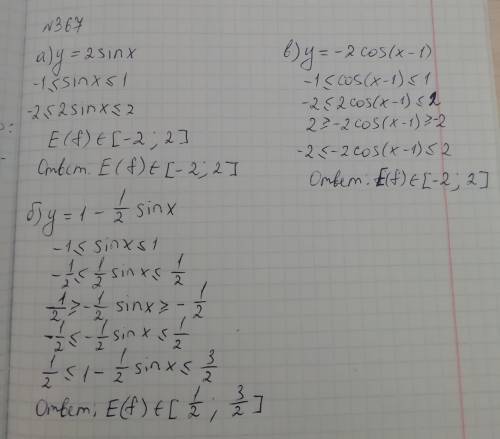 №367
а) y = 2 sin x
-1 ≤ sin x ≤ 1
-2 ≤ 2 sin x ≤ 2
E(f) ∈ [-2; 2]
Ответ: E(f) ∈ [-2; 2]
б) y = 1 - 1/2 sin x
-1 ≤ sin x ≤ 1
-1/2 ≤ 1/2 sin x ≤ 1/2
1/2 ≥ -1/2 sin x ≥ -1/2
-1/2 ≤ -1/2 sin x ≤ 1/2
1/2 ≤ 1 - 1/2 sin x ≤ 3/2
Ответ: E(f) ∈ [1/2; 3/2]
в) y = -2 cos(x-1)
-1 ≤ cos(x-1) ≤ 1
-2 ≤ 2 cos(x-1) ≤ 2
2 ≥ -2 cos(x-1) ≥ -2
-2 ≤ -2 cos(x-1) ≤ 2
Ответ: E(f) ∈ [-2; 2]